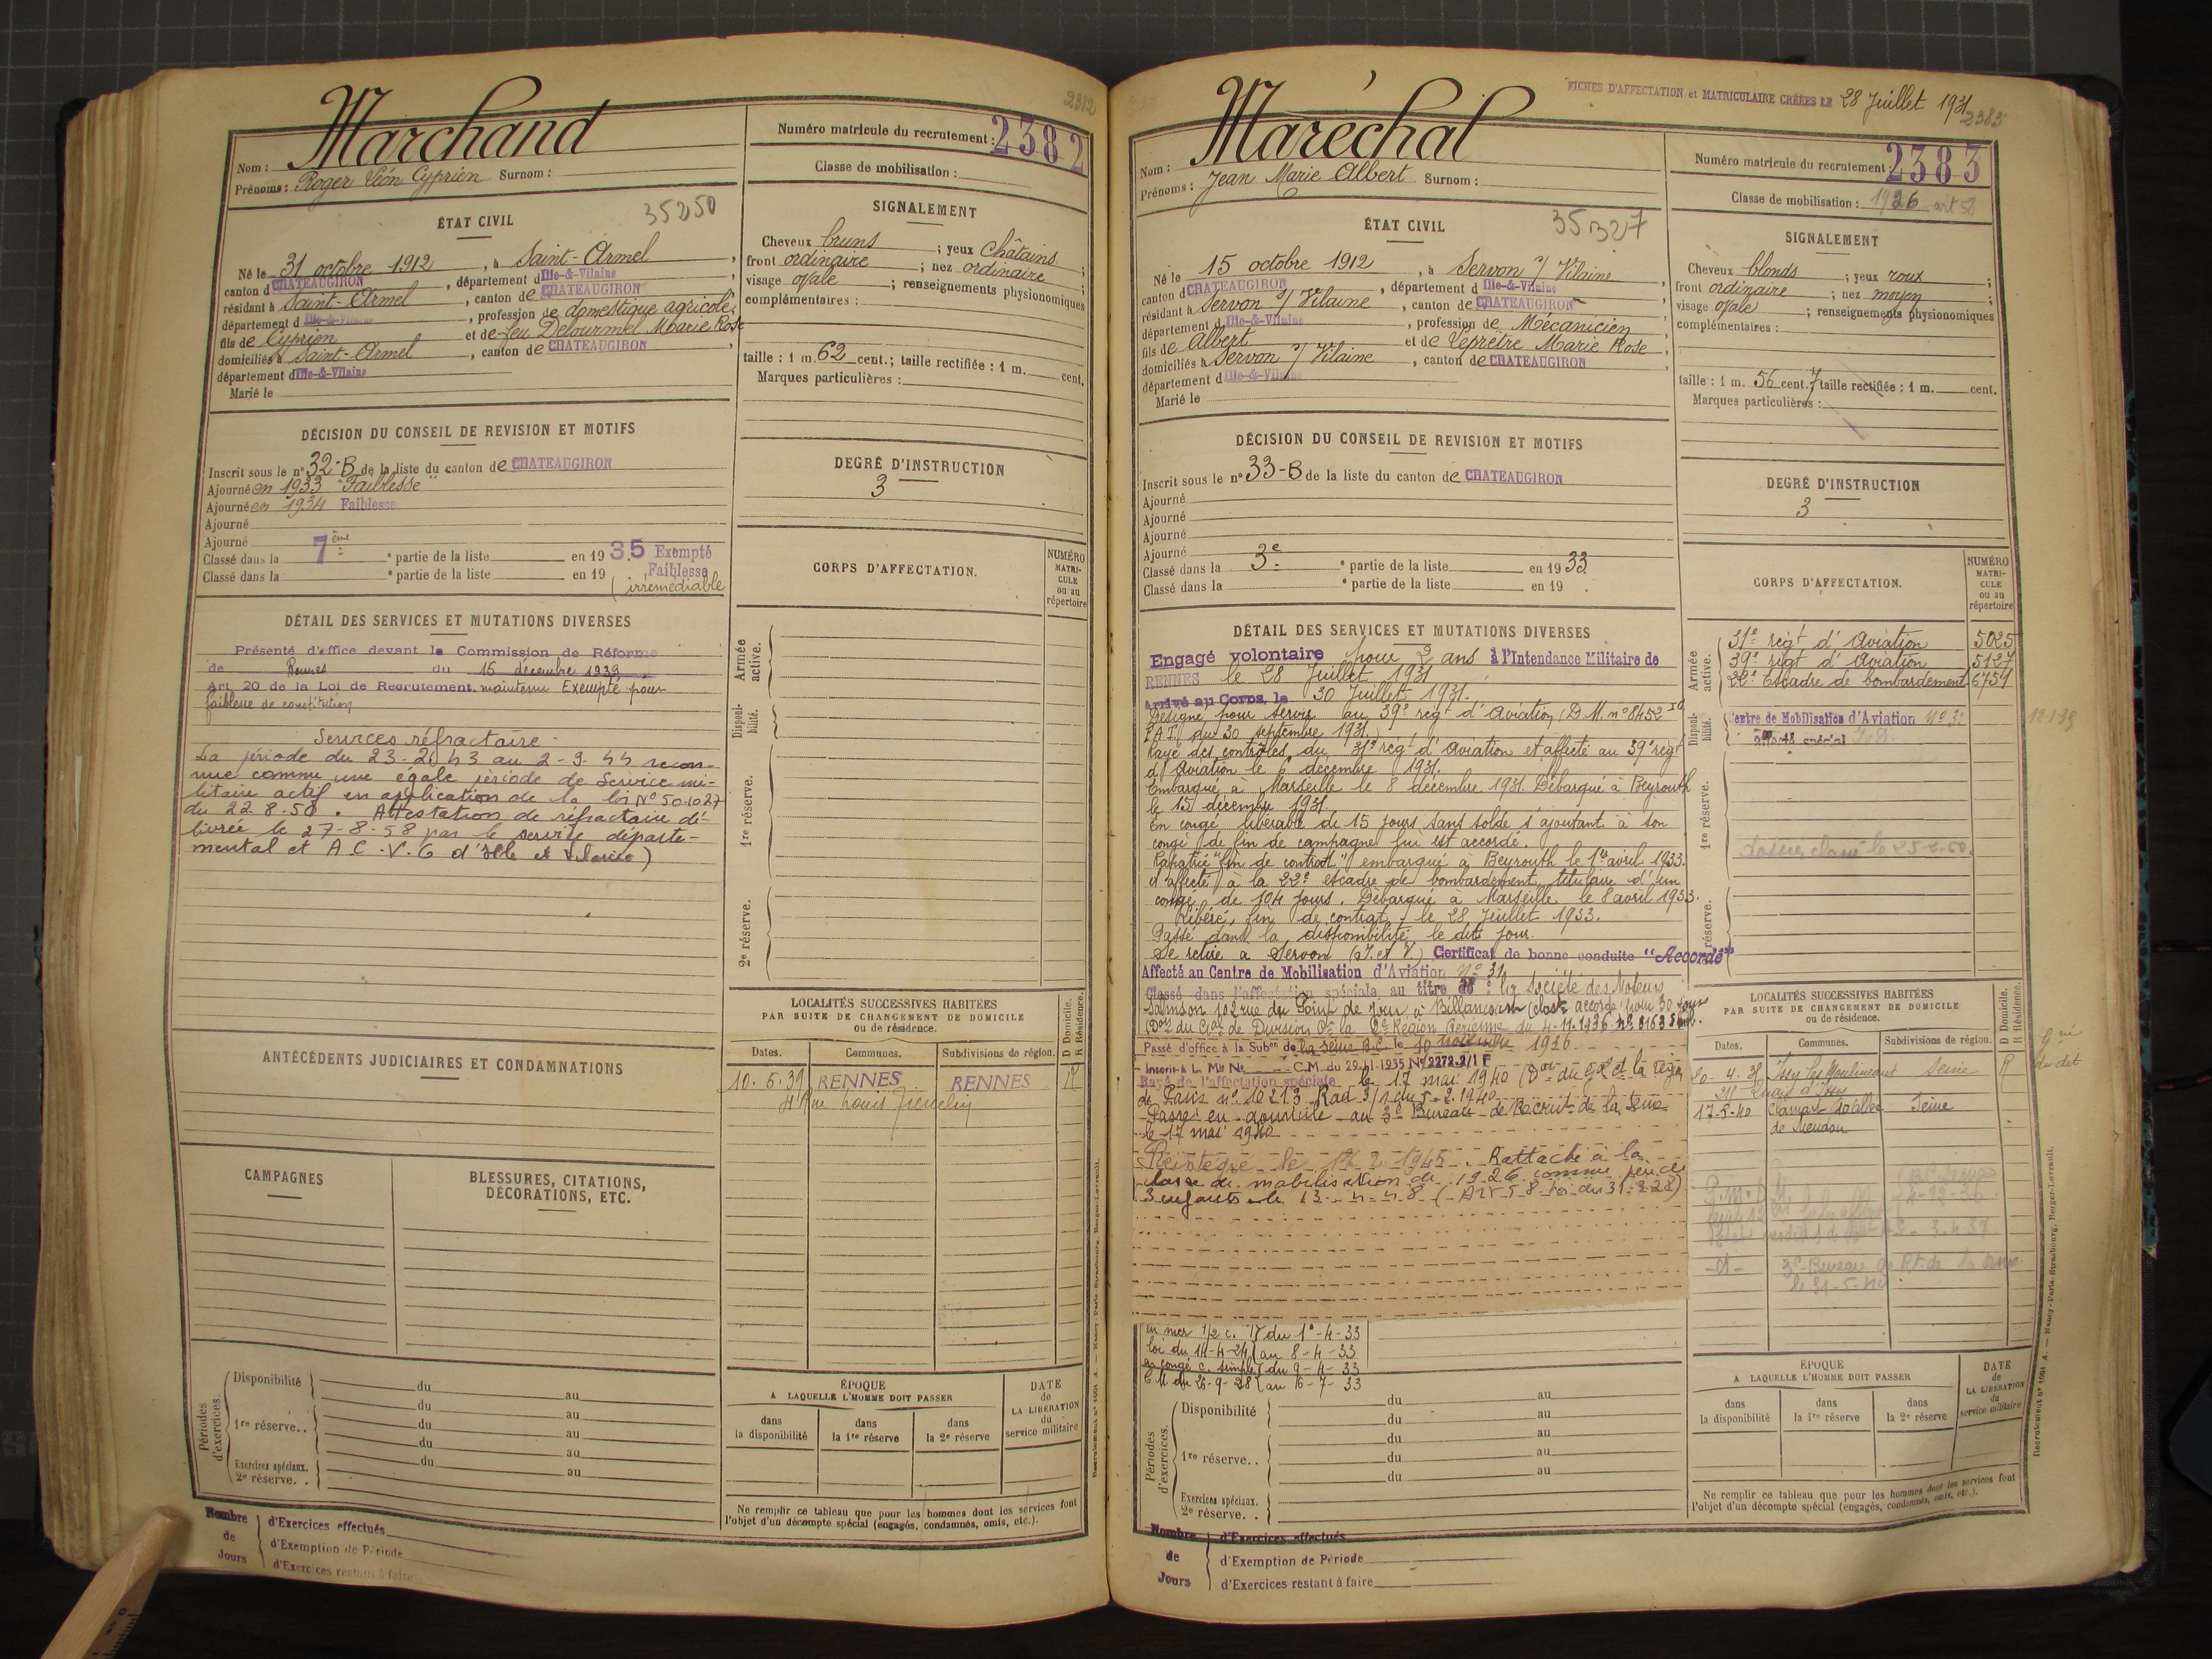 2382
Marchand
Nom :
Prénoms : Roger Léon Cyprien Surnom :
Numéro matricule du recrutement : 2382
Classe de mobilisation :
ÉTAT CIVIL
35250
Né le 31 octobre 1912, à Saint-Armel,
canton d CHATEAUGIRON, département d Ille-&-Vilaine,
résidant à Saint-Armel, canton de CHATEAUGIRON
département d Ille-&-Vilaine, profession de domestique agricole,
fils de Cyprien et de feu Delourmel Marie Rose
domiciliés à Saint-Armel, canton de CHATEAUGIRON,
département d Ille-&-Vilaine
Marié le
SIGNALEMENT
Cheveux bruns ; yeux châtains ;
front ordinaire ; nez ordinaire ;
visage ovale ; renseignements physionomiques
complémentaires :
taille : 1 m. 62 cent. ; taille rectifiée : 1 m. cent.
Marques particulières :
DÉCISION DU CONSEIL DE REVISION ET MOTIFS
Inscrit sous le n° 32-B de la liste du canton de CHATEAUGIRON
Ajourné en 1933 "Faiblesse"
Ajourné en 1934 Faiblesse
Ajourné
Ajourné
Classé dans la 7ème e partie de la liste en 1935 Exempté
Faiblesse
Classé dans la e partie de la liste en 19 (irrémédiable
DEGRÉ D'INSTRUCTION
3
CORPS D'AFFECTATION.
NUMÉRO
MATRI-
CULE
ou au
répertoire
DÉTAIL DES SERVICES ET MUTATIONS DIVERSES
Présenté d'office devant la Commission de Réforme
de Rennes du 16 décembre 1939
Art 20 de la Loi de Recrutement. maintenu Exempté pour
faiblesse de constitution
Services réfractaire
La période du 23-2-43 au 2-9-44 recon-
nue comme une égale période de Service mi-
litaire actif en application de la loi N° 50.1027
du 22.8.50. Attestation de réfractaire dé-
livrée le 27-8-58 par le service départe-
mental et A C.V.G d'Ille et Vilaine)
Armée
active.
Disponi-
bilité.
1re réserve.
2e réserve.
ANTÉCÉDENTS JUDICIAIRES ET CONDAMNATIONS
LOCALITÉS SUCCESSIVES HABITÉES
PAR SUITE DE CHANGEMENT DE DOMICILE
ou de résidence.
D Domicile.
R Résidence.
Dates. Communes. Subdivisions de région.
10.5.39 RENNES RENNES R
rue Louis
CAMPAGNES
BLESSURES, CITATIONS,
DÉCORATIONS, ETC.
Périodes
d'exercices.
Disponibilité du au
du au
1re réserve.. du au
du au
du au
Exercices spéciaux.
2e réserve. .
ÉPOQUE
A LAQUELLE L'HOMME DOIT PASSER
dans
la disponibilité
dans
la 1re réserve
dans
la 2e réserve
DATE
de
LA LIBÉRATION
du
service militaire
Ne remplir ce tableau que pour les hommes dont les services font
l'objet d'un décompte spécial (engagés, condamnés, omis, etc.).
Nombre
de
Jours
d'Exercices effectués
d'Exemption de Période
d'Exercices restant à faire
FICHES D'AFFECTATION et MATRICULAIRE CRÉÉES LE 28 Juillet 1931
2383
Maréchal
Nom :
Prénoms : Jean Marie Albert Surnom :
Numéro matricule du recrutement : 2383
Classe de mobilisation : 1926 art 58
ÉTAT CIVIL
35327
Né le 15 octobre 1912, à Servon s/ Vilaine
canton d CHATEAUGIRON, département d Ille-&-Vilaine
résidant à Servon s/ Vilaine, canton de CHATEAUGIRON
département d Ille-&-Vilaine, profession de Mécanicien
fils de Albert et de Leprêtre Marie Rose,
domiciliés à Servon s/ Vilaine, canton de CHATEAUGIRON,
département d Ille-&-Vilaine
Marié le
SIGNALEMENT
Cheveux blonds ; yeux roux ;
front ordinaire ; nez moyen ;
visage ovale ; renseignements physionomiques
complémentaires :
taille : 1 m. 56 cent. 7 taille rectifiée : 1 m. cent.
Marques particulières :
DÉCISION DU CONSEIL DE REVISION ET MOTIFS
Inscrit sous le n° 33-B de la liste du canton de CHATEAUGIRON
Ajourné
Ajourné
Ajourné
Ajourné
Classé dans la 3e e partie de la liste en 1933
Classé dans la e partie de la liste en 19
DEGRÉ D'INSTRUCTION
3
CORPS D'AFFECTATION.
NUMÉRO
MATRI-
CULE
ou au
répertoire
31e régt d'Aviation 5025
39e régt d'Aviation 5127
22e Escadre de bombardement 6759
Centre de Mobilisation d'Aviation N° 31
Affecté spécial
dossier classé le 25-2-60.
Armée
active.
Disponi-
bilité.
1re réserve.
réserve.
DÉTAIL DES SERVICES ET MUTATIONS DIVERSES
Engagé volontaire pour 2 ans à l'Intendance Militaire de
RENNES le 28 Juillet 1931
Arrivé au Corps, le 30 Juillet 1931.
Désigné pour servir au 39e régt d'Aviation (D.M. n° 8452
E.A.I. du 30 septembre 1931.)
Rayé des contrôles du 31e régt d'aviation et affecté au 39e régt
d'Aviation le 6 décembre 1931.
Embarqué à Marseille le 8 décembre 1931. Débarqué à Beyrouth
le 15 décembre 1931.
En congé libérable de 15 jours sans solde s'ajoutant à son
congé de fin de campagne lui est accordé.
Rapatrié "fin de contrat" embarqué à Beyrouth le 1er avril 1933.
et affecté à la 22e escadre de bombardement, titulaire d'un
congé de 104 jours. Débarqué à Marseille le 8 avril 1933.
Libéré, fin de contrat, le 28 Juillet 1933.
Passé dans la disponibilité le dit jour.
Se retire à Servon (I. et V.) Certificat de bonne conduite "Accordé"
Affecté au Centre de Mobilisation d'Aviation N° 31
Classé dans l'affectation spéciale au titre de : la Société des Moteurs
Salmson 102 rue du Point de Jour à Billancourt (classt accordé pour 30 jours
du 4-11-1936 n°
Passé d'office à la Subon de la Seine B.C. le 10 novembre 1936.
Inscrit à L Mle No C.M. du 29-11-1935 N° 2272-2/1 F
Rayé de l'affectation spéciale le 17 mai 1940 (Don du Gl Ct la région
de Paris n° 10213 Rad 3/1 du 5.2.1940
Passé en domicile au 3e Bureau de Recrut de la Seine
le 17 mai 1940
Réintégré le 12 2 1945. Rattaché à la
classe de mobilisation de 1926 comme père de
3 enfants le 13-4-48 (Art 58 loi du 31-3-28)
en mer 1/2 c. du 1er-4-33
loi du 14-4-24 au 8-4-33
en congé c. simple du 9-4-33
C.M. du 26-9-28 au 16-7-33
LOCALITÉS SUCCESSIVES HABITÉES
PAR SUITE DE CHANGEMENT DE DOMICILE
ou de résidence.
D Domicile.
R Résidence.
Dates. Communes. Subdivisions de région.
20-4-38 Issy les Moulineaux Seine R
17-5-40 Clamart Seine
de Meudon
3e Bureau de Rt de la Seine
Périodes
d'exercices.
Disponibilité du au
du au
1re réserve.. du au
du au
du au
Exercices spéciaux.
2e réserve. .
ÉPOQUE
A LAQUELLE L'HOMME DOIT PASSER
dans
la disponibilité
dans
la 1re réserve
dans
la 2e réserve
DATE
de
LA LIBÉRATION
du
service militaire
Ne remplir ce tableau que pour les hommes dont les services font
l'objet d'un décompte spécial (engagés, condamnés, omis, etc.).
Nombre
de
Jours
d'Exercices effectués
d'Exemption de Période
d'Exercices restant à faire